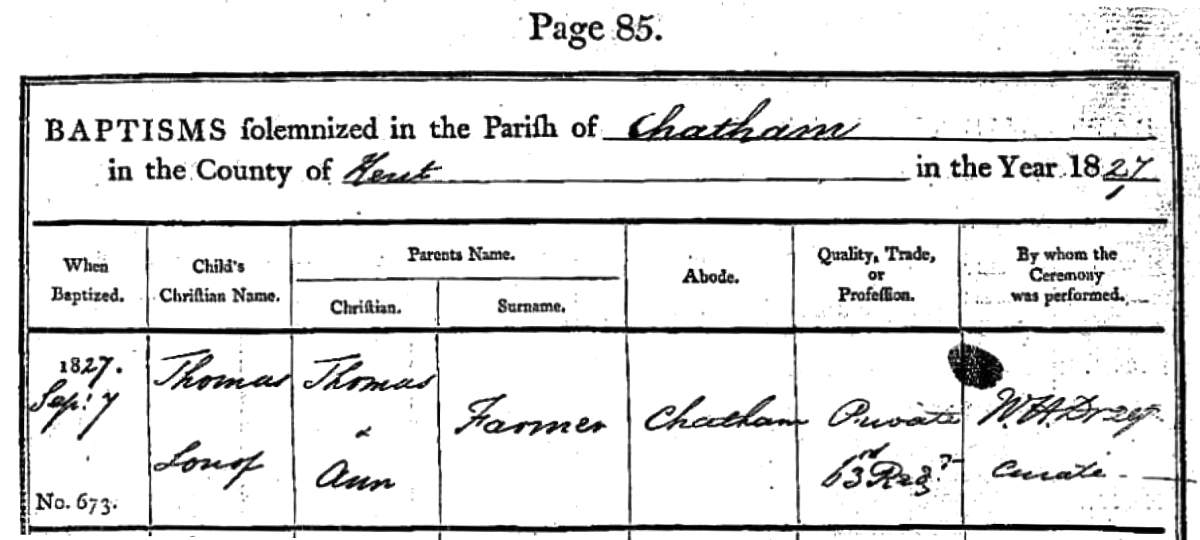 Page 85.
BAPTISMS ſolemnized in the Pariſh of Chatham
in the County of Kent in the Year 1827
When
Baptized.
Child's
Chriſtian Name.
Parents Name.
Chriſtian.
Surname.
Abode.
Quality, Trade,
or
Profeſſion.
By whom the
Ceremony
was performed.
1827.
Sep: 7
No. 673.
Thomas
Son of
Thomas
&
Ann
Farmer
Chatham
Private
63rd Regt
W. H.
Curate